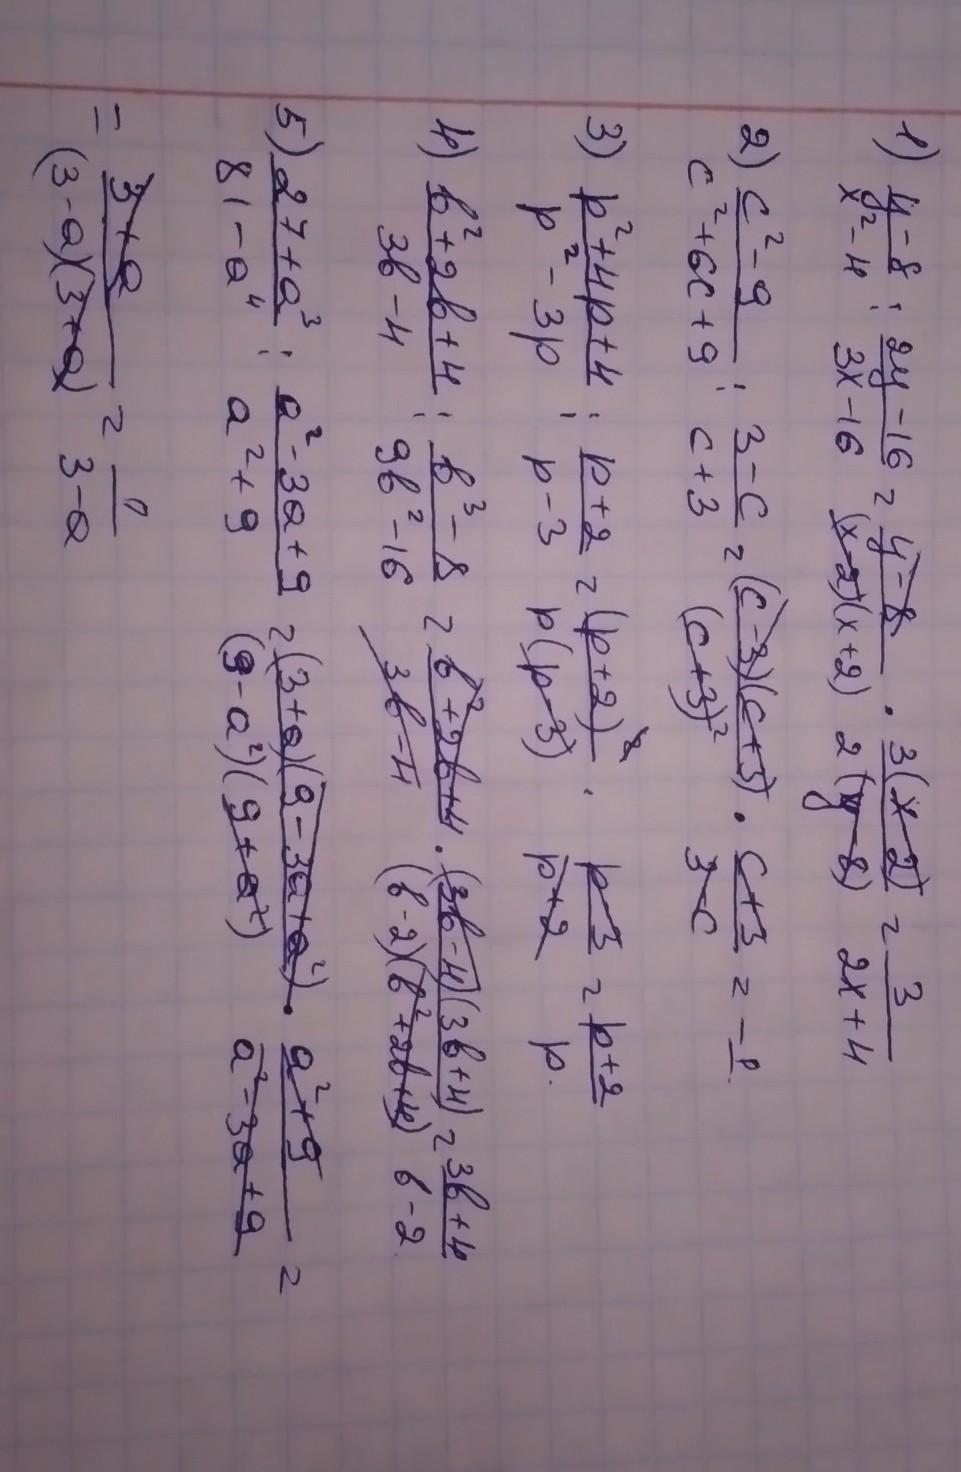 1) y-8/x²-4 : 2y-16/3x-16 = y-8/(x-2)(x+2) · 3(x-2)/2(y-8) = 3/2x+4
2) c²-9/c²+6c+9 : 3-c/c+3 = (c-3)(c+3)/(c+3)² · c+3/3-c = -1.
3) p²+4p+4/p²-3p : p+2/p-3 = (p+2)²/p(p-3) · p-3/p+2 = p+2/p.
4) b²+2b+4/3b-4 : b³-8/9b²-16 = b²+2b+4/3b-4 · (3b-4)(3b+4)/(b-2)(b²+2b+4) = 3b+4/b-2.
5) 27+a³/81-a⁴ : a²-3a+9/a²+9 = (3+a)(9-3a+a²)/(9-a²)(9+a²) · a²+9/a²-3a+9 =
= 3+a/(3-a)(3+a) = 1/3-a